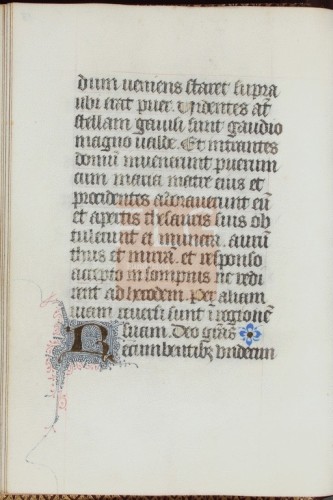 dum veniens staret supra
ubi erat puer. Videntes aut̄
stellam gavisi sunt gaudio
magno valde. Et intrantes
domū invenerunt puerum
cum maria matre eius et
procidentes adoraverunt eū
et apertis thesauris suis ob
tulerunt ei munera. aurū
thus et mirrā. et responso
accepto in sompnis ne redi
rent ad herodem. Per aliam
viam reversi sunt ī regionē
suam. Deo grās
Recumbentibꝫ undecim